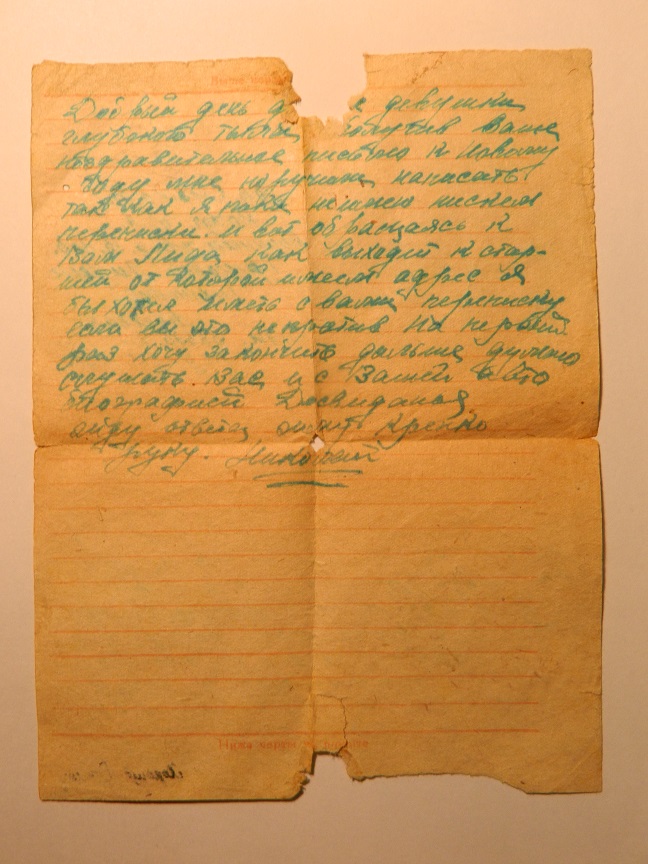 Добрый день д е девушки
глубокого тыла получив Ваше
поздравительное письмо к Новому
году мне поручили написать
так как я пока не имею никакой
переписки. и вот обращаясь к
Вам Лида как выходит к стар-
шей от которой имеем адрес я
бы хотел иметь с вами переписку
если вы это непротив На первый
раз хочу закончить дальше думаю
слушать Вас и с Вашей Авто
биографией Досвидания
жду ответа жму крепко
руку. Николай
Ниже черты не